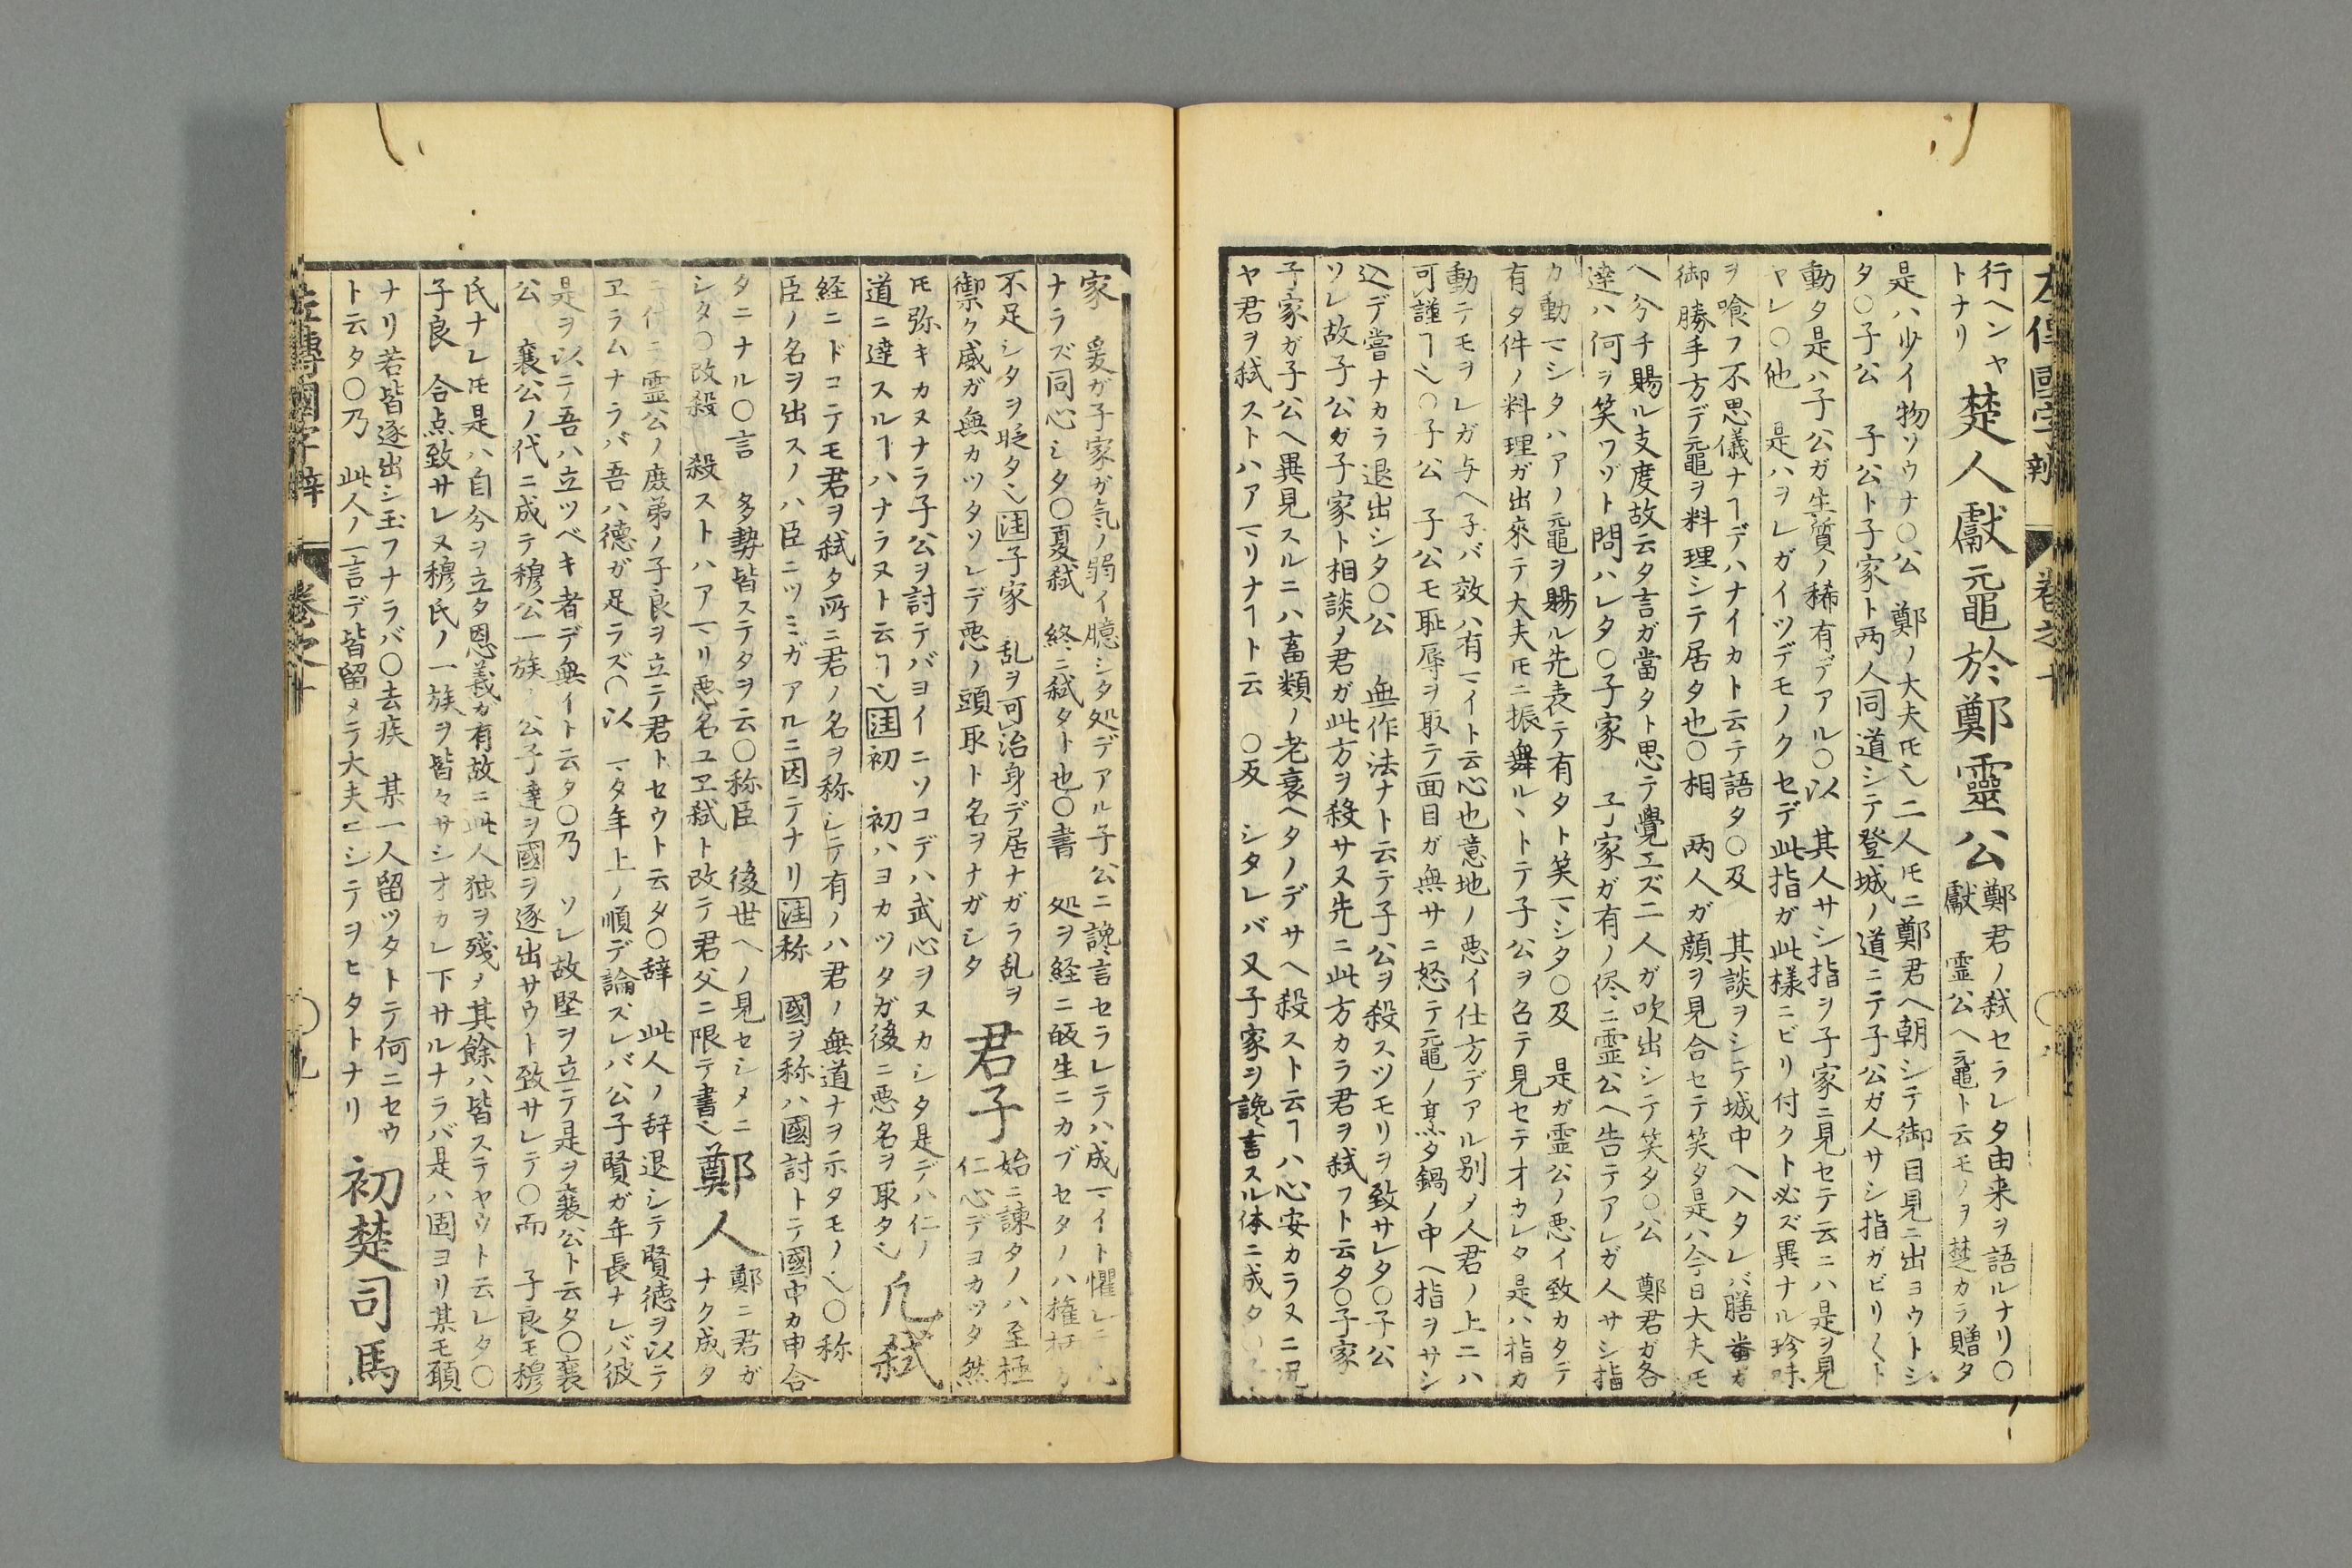 左傳國字辯 卷之十
行ヘンヤ
トナリ
楚人獻黿於鄭靈公
鄭君ノ弑セラレタ由来ヲ語ルナリ〇
獻 霊公ヘ黿ト云モノヲ楚カラ贈タ
是ハ少イ物ソウナ〇公 鄭ノ大夫𪜈也二人𪜈ニ鄭君ヘ朝シテ御目見ニ出ヨウトシ
タ〇子公 子公ト子家ト両人同道シテ登城ノ道ニテ子公ガ人サシ指ガビリ〱ト
動タ是ハ子公ガ生質ノ稀有デアル〇以 其人サシ指ヲ子家ニ見セテ云ニハ是ヲ見
ヤレ〇他 是ハヲレガイツデモノクセデ此指ガ此様ニビリ付クト必ズ異ナル珍味
ヲ喰フ不思儀ナヿデハナイカト云テ語タ〇及 其談ヲシテ城中ヘ入タレバ膳番ガ
御勝手方デ黿ヲ料理シテ居タ也〇相 両人ガ顔ヲ見合セテ笑タ是ハ今日大夫モ
ヘ分チ賜ル支度故云タ言ガ當タト思テ覺エズ二人ガ吹出シテ笑タ〇公 鄭君ガ各
達ハ何ヲ笑ワヅト問ハレタ〇子家 子家ガ有ノ侭ニ霊公ヘ告テアレガ人サシ指
カ動マシタハアノ黿ヲ賜ル先表テ有タト笑マシタ〇及 是ガ霊公ノ悪イ致カタテ
有タ件ノ料理ガ出來テ大夫𪜈ニ振舞ルヽトテ子公ヲ召テ見セテオカレタ是ハ指カ
動テモヲレガ与ヘ子バ效ハ有マイト云心也意地ノ悪イ仕方デアル別メ人君ノ上ニハ
可謹ヿ也〇子公 子公モ耻辱ヲ取テ面目ガ無サニ怒テ黿ノ烹タ鍋ノ中ヘ指ヲサシ
込デ嘗ナカラ退出シタ〇公 無作法ナト云テ子公ヲ殺スツモリヲ致サレタ〇子公
ソレ故子公ガ子家ト相談メ君ガ此方ヲ殺サヌ先ニ此方カラ君ヲ弑フト云タ〇子家
子家ガ子公ヘ異見スルニハ畜類ノ老衰ヘタノデサヘ殺スト云ヿハ心安カラヌニ况
ヤ君ヲ弑ストハアマリナヿト云 〇反 シタレバ又子家ヲ讒言スル体ニ成タ
家 爰ガ子家ガ気ノ弱イ臆シタ処デアル子公ニ讒言セラレテハ成マイト懼レニ
ナラズ同心シタ〇夏弑 終ニ弑タト也〇書 処ヲ経ニ皈生ニカブセタノハ権
不足シタヲ貶タ也注子家 乱ヲ可治身デ居ナガラ乱ヲ
禦ケ威ガ無カツタソレデ悪ノ頭取ト名ヲナガシタ
君子
始ニ諫タノハ至極
仁心デヨカツタ然
𪜈弥キカヌナラ子公ヲ討テバヨイニソコデハ武心ヲヌカシタ是デハ仁ノ
道ニ達スルヿハナラヌト云ヿ也注初 初ハヨカツタガ後ニ悪名ヲ取タ也
凡弑
経ニドコニテモ君ヲ弑タ所ニ君ノ名ヲ称シテ有ノハ君ノ無道ナヲ示タモノ也〇称
臣ノ名ヲ出スノハ臣ニツミガアルニ因テナリ注称 國ヲ称ハ國討トテ國中カ申合
タニナル〇言 多勢皆ステタヲ云〇称臣 後世ヘノ見セシメニ
シタ〇改殺 殺ストハアマリ悪名ユヱ弑ト改テ君父ニ限テ書也
鄭人
鄭ニ君ガ
ナク成タ
ニ付ニ霊公ノ庶弟ノ子良ヲ立テ君トセウト云タ〇辞 此人ノ辞退シテ賢徳ヲ以テ
ヱラムナラバ吾ハ徳ガ足ラズ〇以 マタ年上ノ順デ論ズレバ公子賢ガ年長ナレバ彼
是ヲ以テ吾ハ立ツベキ者デ無イト云タ〇乃 ソレ故堅ヲ立テ是ヲ襄公ト云タ〇襄
公 襄公ノ代ニ成テ穆公一族ノ公子達ヲ國ヲ逐出サウト致サレテ〇而 子良モ穆
氏ナレ𪜈是ハ自分ヲ立タ恩義ガ有故ニ此人独ヲ残メ其餘ハ皆ステヤウト云レタ〇
子良 合点致サレヌ穆氏ノ一族ヲ皆々サシオカレ下サルナラバ是ハ固ヨリ某モ頋
ナリ若皆逐出シ玉フナラバ〇去疾 某一人留ツタトテ何ニセウ
ト云タ〇乃 此人ノ一言デ皆留メテ大夫ニシテヲヒタトナリ
初楚司馬
左傳國字辯 卷之十 〇九